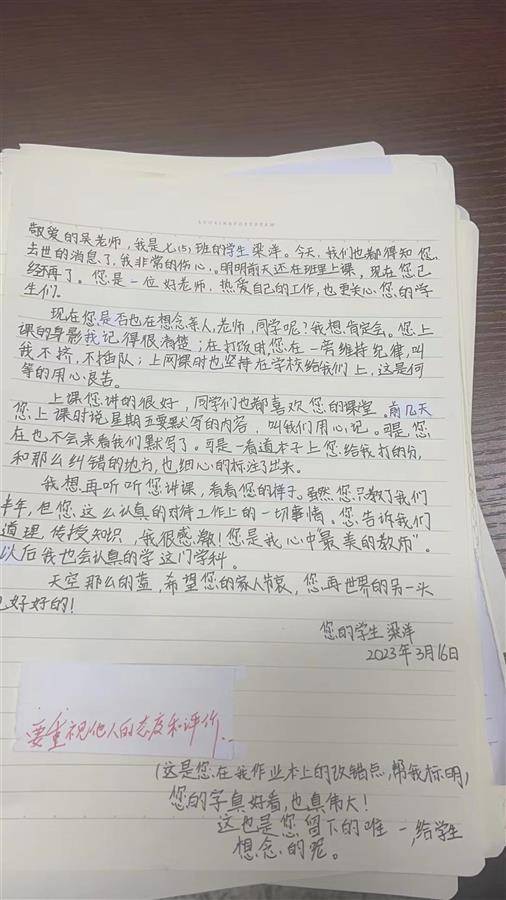 敬爱的吴老师，我是七（5）班的学生梁洋。今天，我们也都得知您
去世的消息了，我非常的伤心。明明前天还在班里上课，现在您已
经不再了。您是一位好老师，热爱自己的工作，也更关心您的学
生们。
现在您是否也在想念亲人，老师，同学呢？我想肯定会。您上
课的身影我记得很清楚；在打饭时，您在一旁维持纪律，叫
我不挤，不插队；上网课时也坚持在学校给我们上，这是何
等的用心良苦。
上课您讲的很好，同学们也都喜欢您的课堂。前几天
您上课时说星期五要默写的内容，叫我们用心记。可是您
在也不会来看我们默写了。可是一看道本子上您给我打的分，
和那么纠错的地方，也细心的标注了出来。
我想再听听您讲课，看看您的样子。虽然您只教了我们
半年，但您这么认真的对待工作上的一切事情。您告诉我们
道理，传授知识，我很感激！您是我心中“最美的教师”。
以后我也会认真的学这门学科。
天空那么的蓝，希望您的家人节哀，您再世界的另一头
也好好的！
您的学生 梁洋
2023年3月16日
要重视他人的态度和评价.
（这是您在我作业本上的改错点，帮我标明）
您的字真好看，也真伟大！
这也是您留下的唯一，给学生
想念的呢。